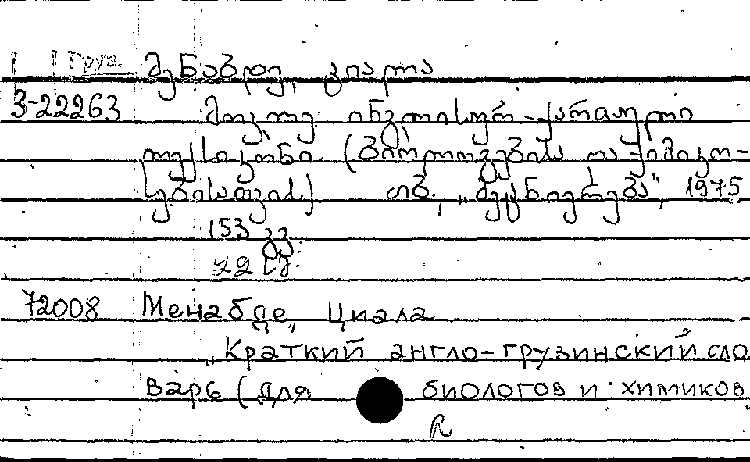 Груз. მენაბდე, ციალა
3-22263 მოკლე ინგლისურ-ქართული
ლექსიკონი (ბიოლოგებისა და ქიმიკო-
სებისათვის) თბ., „მეცნიერება", 1975
153 გვ.
72008 Менабде, Циала
„Краткий англо-грузинский сло
варь (для биологов и химиков